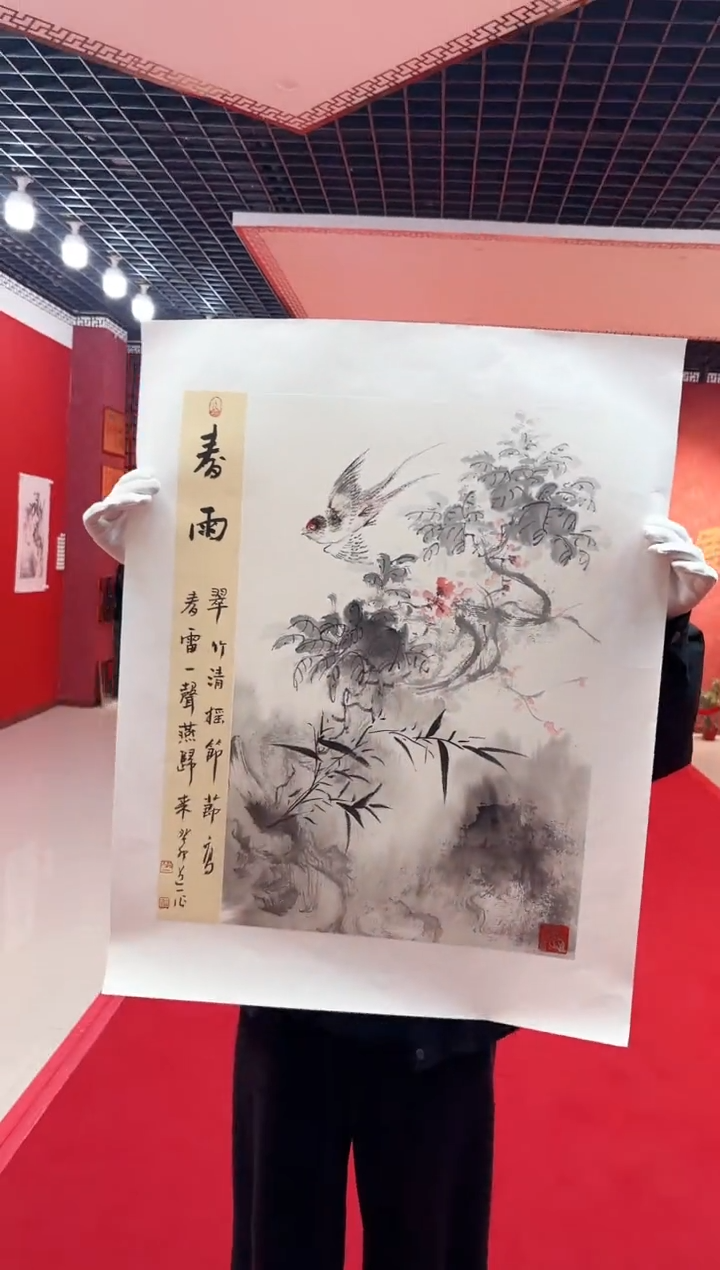 春雨
翠竹清摇節節高
春雷一聲燕歸来 癸卯 一心